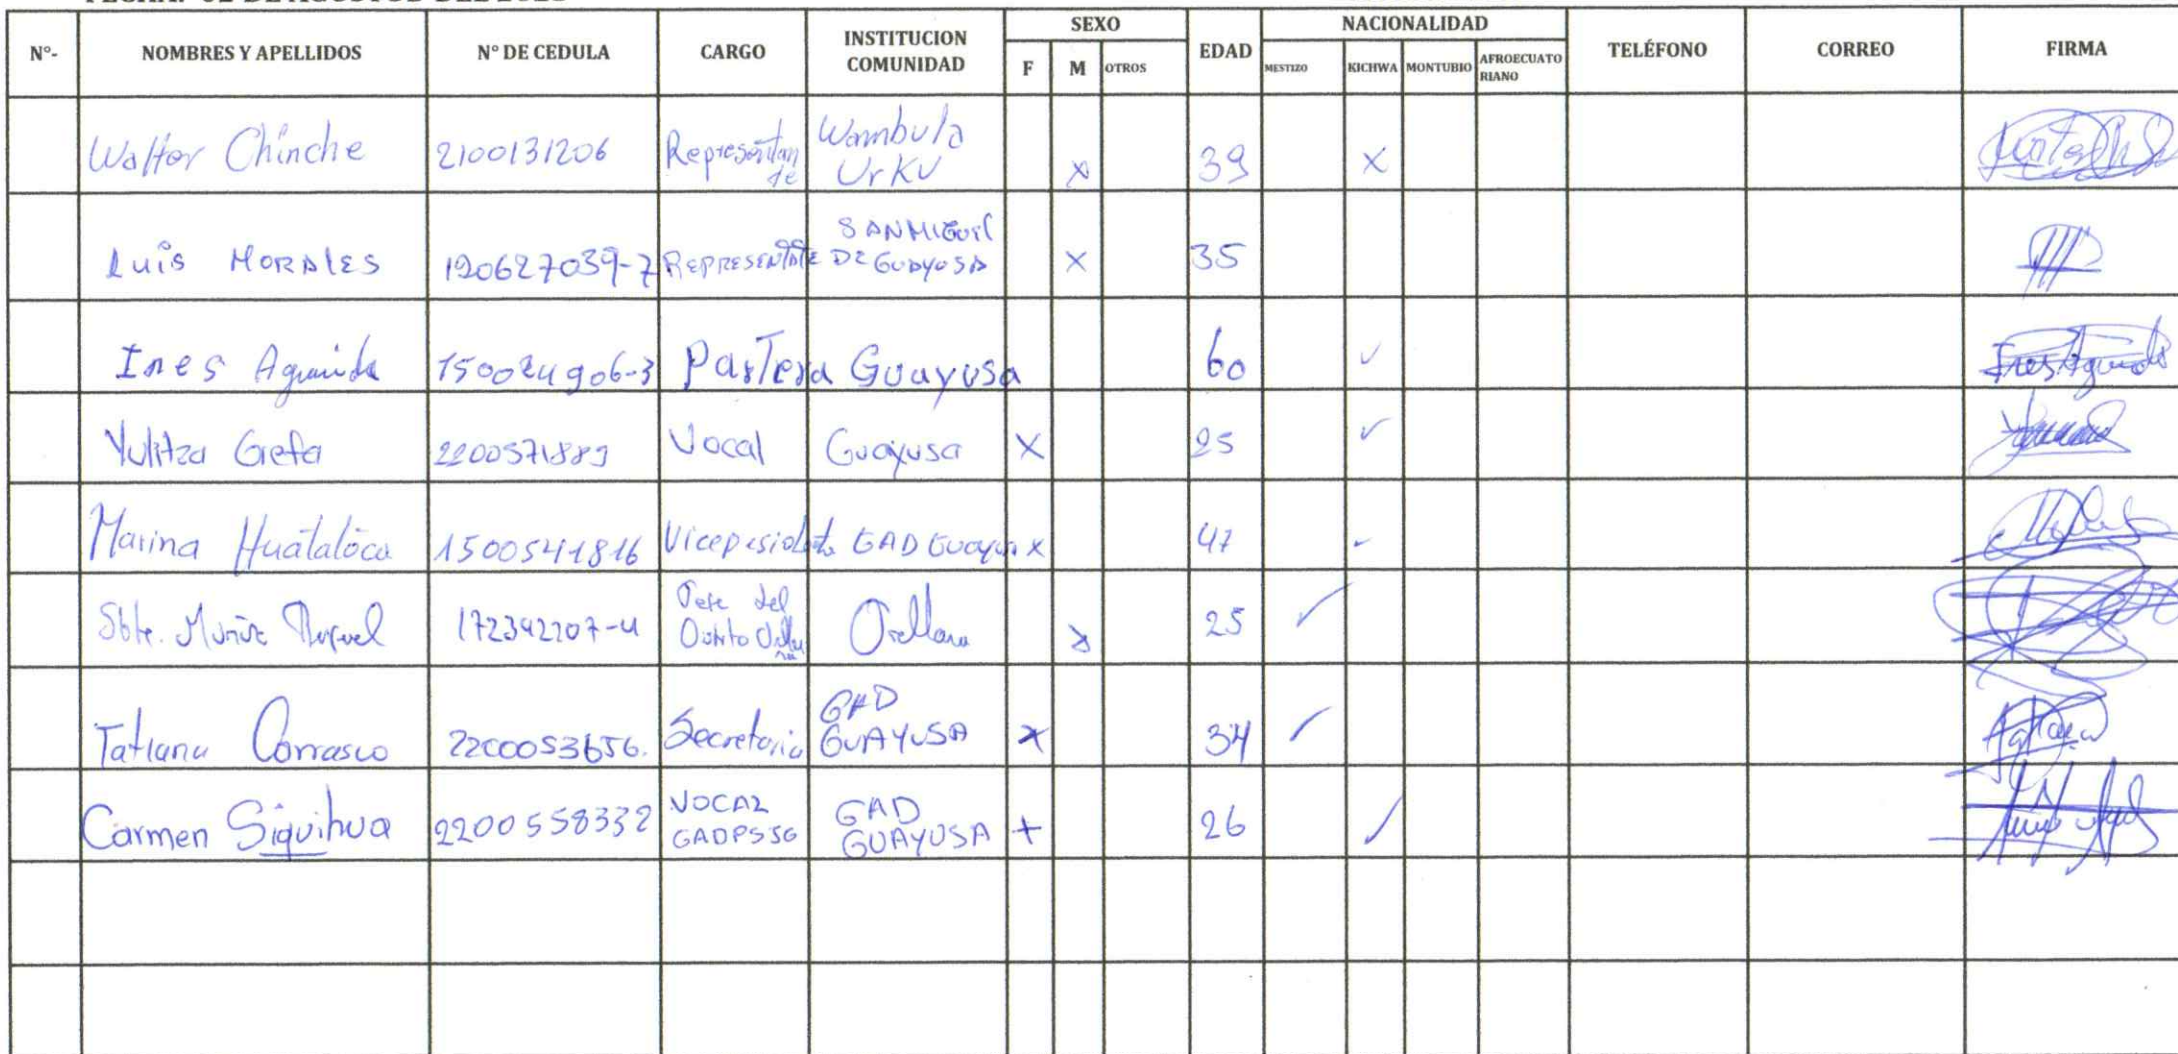 N°- NOMBRES Y APELLIDOS N° DE CEDULA CARGO INSTITUCION COMUNIDAD SEXO F M OTROS EDAD NACIONALIDAD MESTIZO KICHWA MONTUBIO AFROECUATORIANO TELÉFONO CORREO FIRMA
Walter Chinche 2100131206 Representante Wambula Urku x 39 x
Luis MORALES 120627039-7 REPRESENTATE SAN MIGUEL DE GUAYUSA x 35
Ines Aguinda 150024906-3 Partera Guayusa 60 ✓ Ines Aguinda
Yulitza Grefa 2200571889 Vocal Guayusa X 25 ✓
Marina Huatatoca 1500541816 GAD Guayusa x 47 ✓
Sbte. Muñoz 172392207-4 Orellana x 25 ✓
Tatiana Carrasco 2200053656. Secretaria GAD GUAYUSA x 34 ✓
Carmen Siquihua 2200558332 VOCAL GADPSJG GAD GUAYUSA + 26 ✓